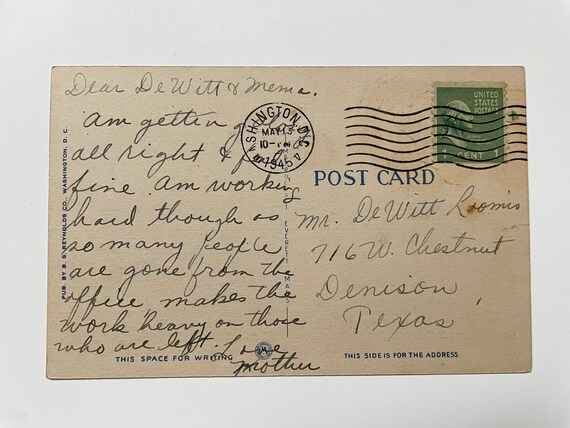 Dear DeWitt & Mema.
am getting along
all right & feel
fine. Am working
hard though as
so many people
are gone from the
office makes the
work heavy on those
who are left. Love
Mother
WASHINGTON, D.C.
MAY 13
10-PM
1945
UNITED
STATES
POSTAGE
1 CENT 1
POST CARD
Mr. DeWitt Loomis
716 W. Chestnut
Denison,
Texas
PUB. BY B. S. REYNOLDS CO. WASHINGTON, D. C.
THIS SPACE FOR WRITING
THIS SIDE IS FOR THE ADDRESS